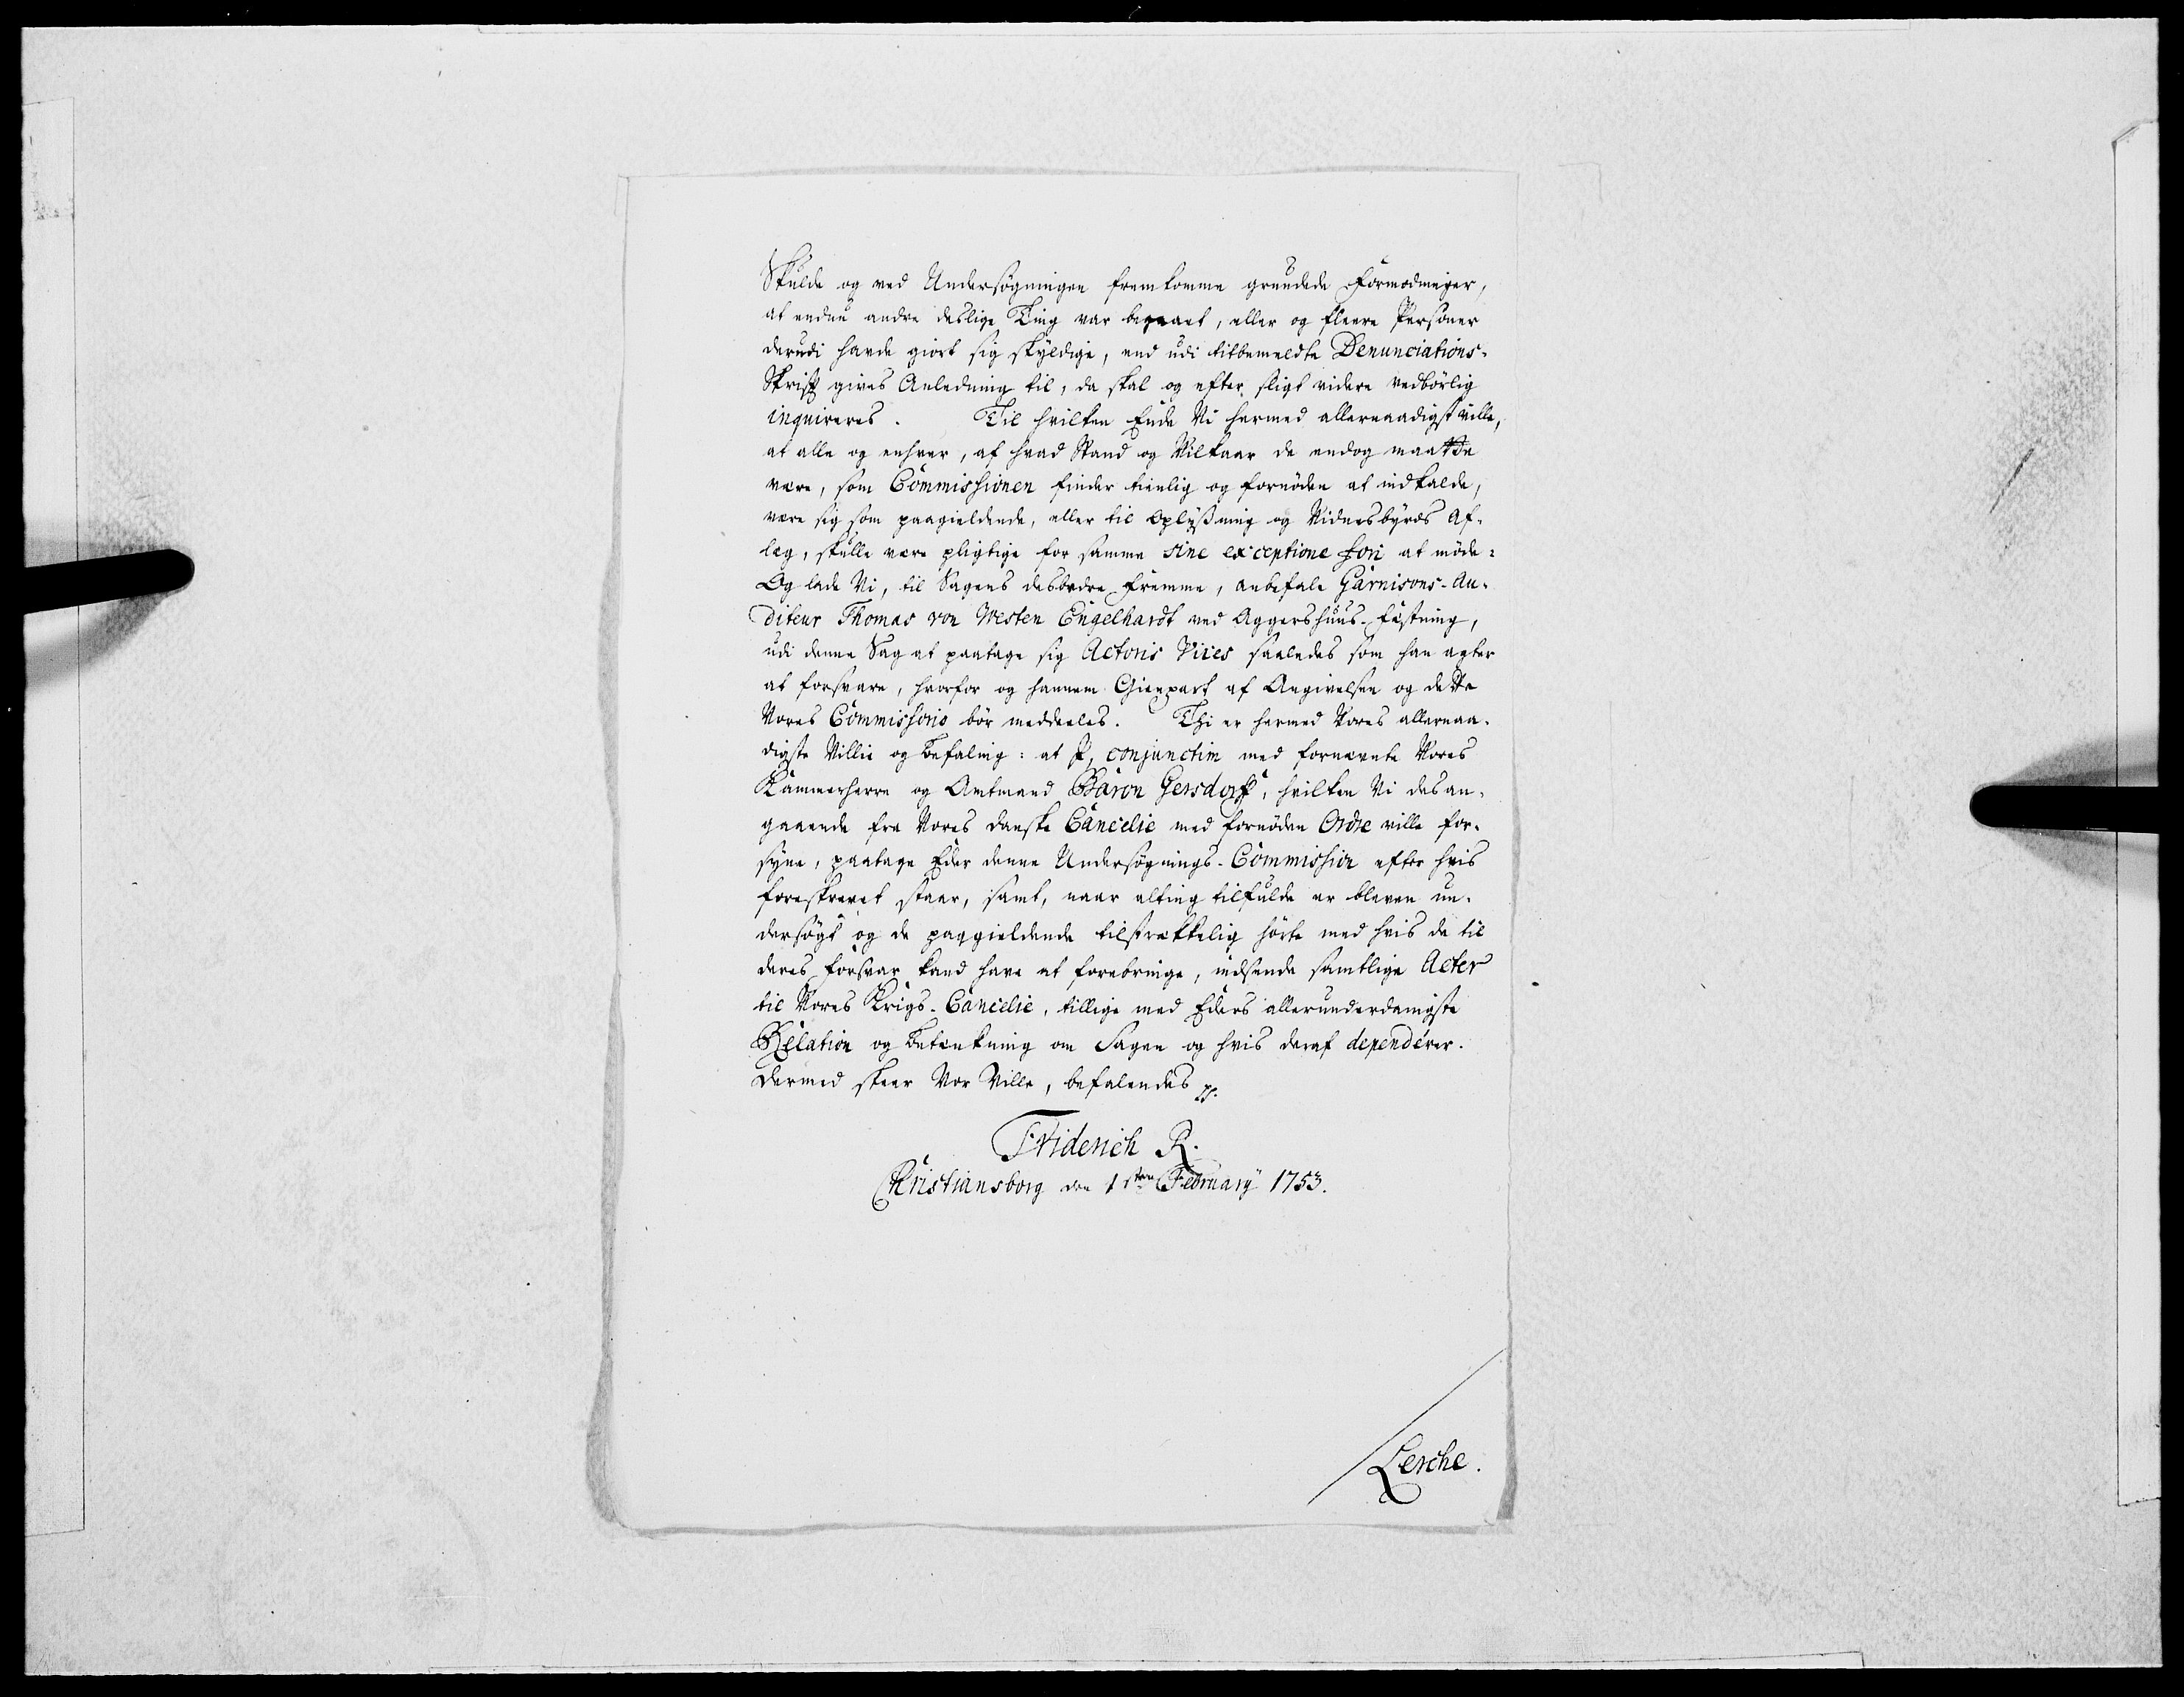 Skulde og ved Undersøgningen fremkomme grundede Formodninger,
at endnu andre deslige Ting var begaaet, eller og fleere Personer
derudi havde giort sig skyldige, end udi titbemeldte Denunciations-
Skrift gives Anledning til, da skal og efter sligt videre vedbörlig
inquireres. Til hvilken Ende Vi hermed allernaadigst ville,
at alle og enhver, af hvad Stand og Vilkaar de endog maatte
være, som Commissionen finder tienlig og fornöden at indkalde,
være sig som paagieldende, eller til Oplysning og Vidnesbyrds Af-
læg, skulle være pligtige for samme sine exceptione fori at möde:
Og lade Vi, til Sagens desbedre Fremme, anbefale Garnisons-Au-
diteur Thomas von Westen Engelhardt ved Aggershuus-Fæstning,
udi denne Sag at paatage sig Actoris Vices saaledes som han agter
at forsvare, hvorfor og hannem Gienpart af Angivelsen og dette
Vores Commissorio bör meddeeles. Thi er hermed Vores allernaa-
digste Villie og Befaling: at I, conjunctim med fornævnte Vores
Kammerherre og Amtmand Baron Gersdorff, hvilken Vi desan-
gaaende fra Vores danske Cancelie med fornöden Ordre ville for-
syne, paatage Eder denne Undersøgnings-Commission efter hvis
foreskrevet staar, samt, naar alting tilfulde er bleven un-
dersögt og de paagieldende tilstrækkelig hörte med hvis de til
deres Forsvar kand have at forebringe, indsende samtlige Acter
til Vores Krigs-Cancelie, tillige med Eders allerunderdanigste
Relation og Betænkning om Sagen og hvis deraf dependérer.
Dermed skeer Vor Ville, befalendes pp.
Friderich R.
Christiansborg den 1sten February 1753.
Lerche.